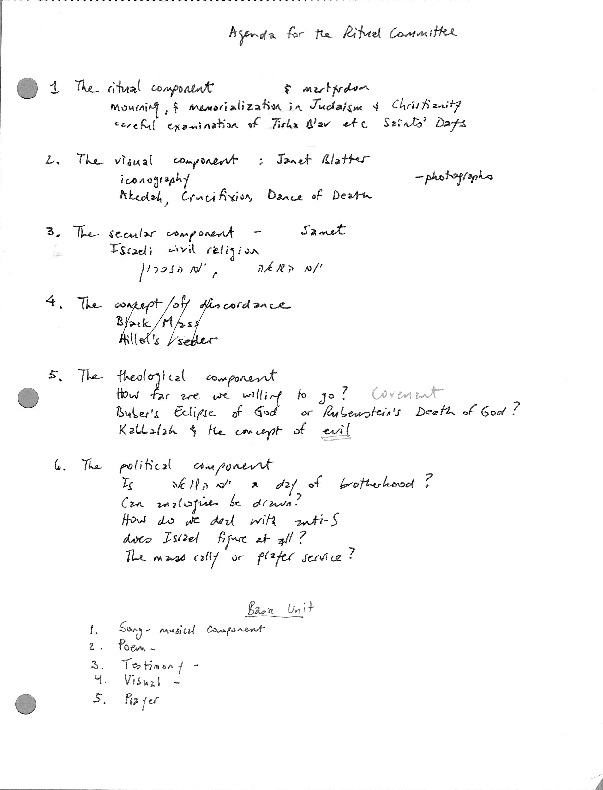 Agenda for the Ritual Committee
1 The ritual component & martyrdom
mourning, & memorialization in Judaism & Christianity
careful examination of Tisha B'av etc Saints' Days
2. The visual component : Janet Blatter
iconography - photographs
Akedah, Crucifixion, Dance of Death
3. The secular component - Samet
Israeli civil religion
יום הזכרון, יום השואה
4. The concept of discordance
Black Mass
Hillel's seder
5. The theological component
How far are we willing to go? Covenant
Buber's Eclipse of God or Rubenstein's Death of God?
Kabbalah & the concept of evil
6. The political component
Is יום השואה a day of brotherhood?
Can analogies be drawn?
How do we deal with anti-S
does Israel figure at all?
The mass rally or prayer service?
Basic Unit
1. Song - musical component
2. Poem -
3. Testimony -
4. Visual -
5. Prayer